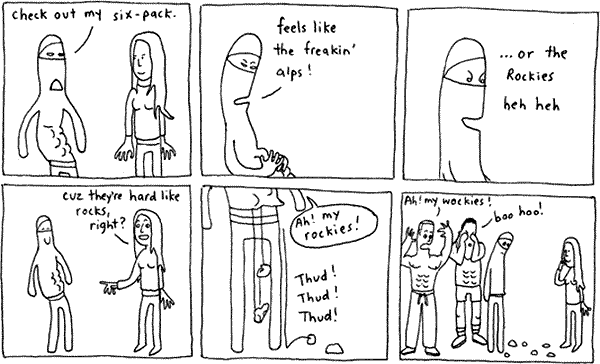 check out my six-pack.
feels like
the freakin'
alps!
...or the
Rockies
heh heh
cuz they're hard like
rocks,
right?
Ah! my
rockies!
Thud!
Thud!
Thud!
Ah! my wockies!
boo hoo!